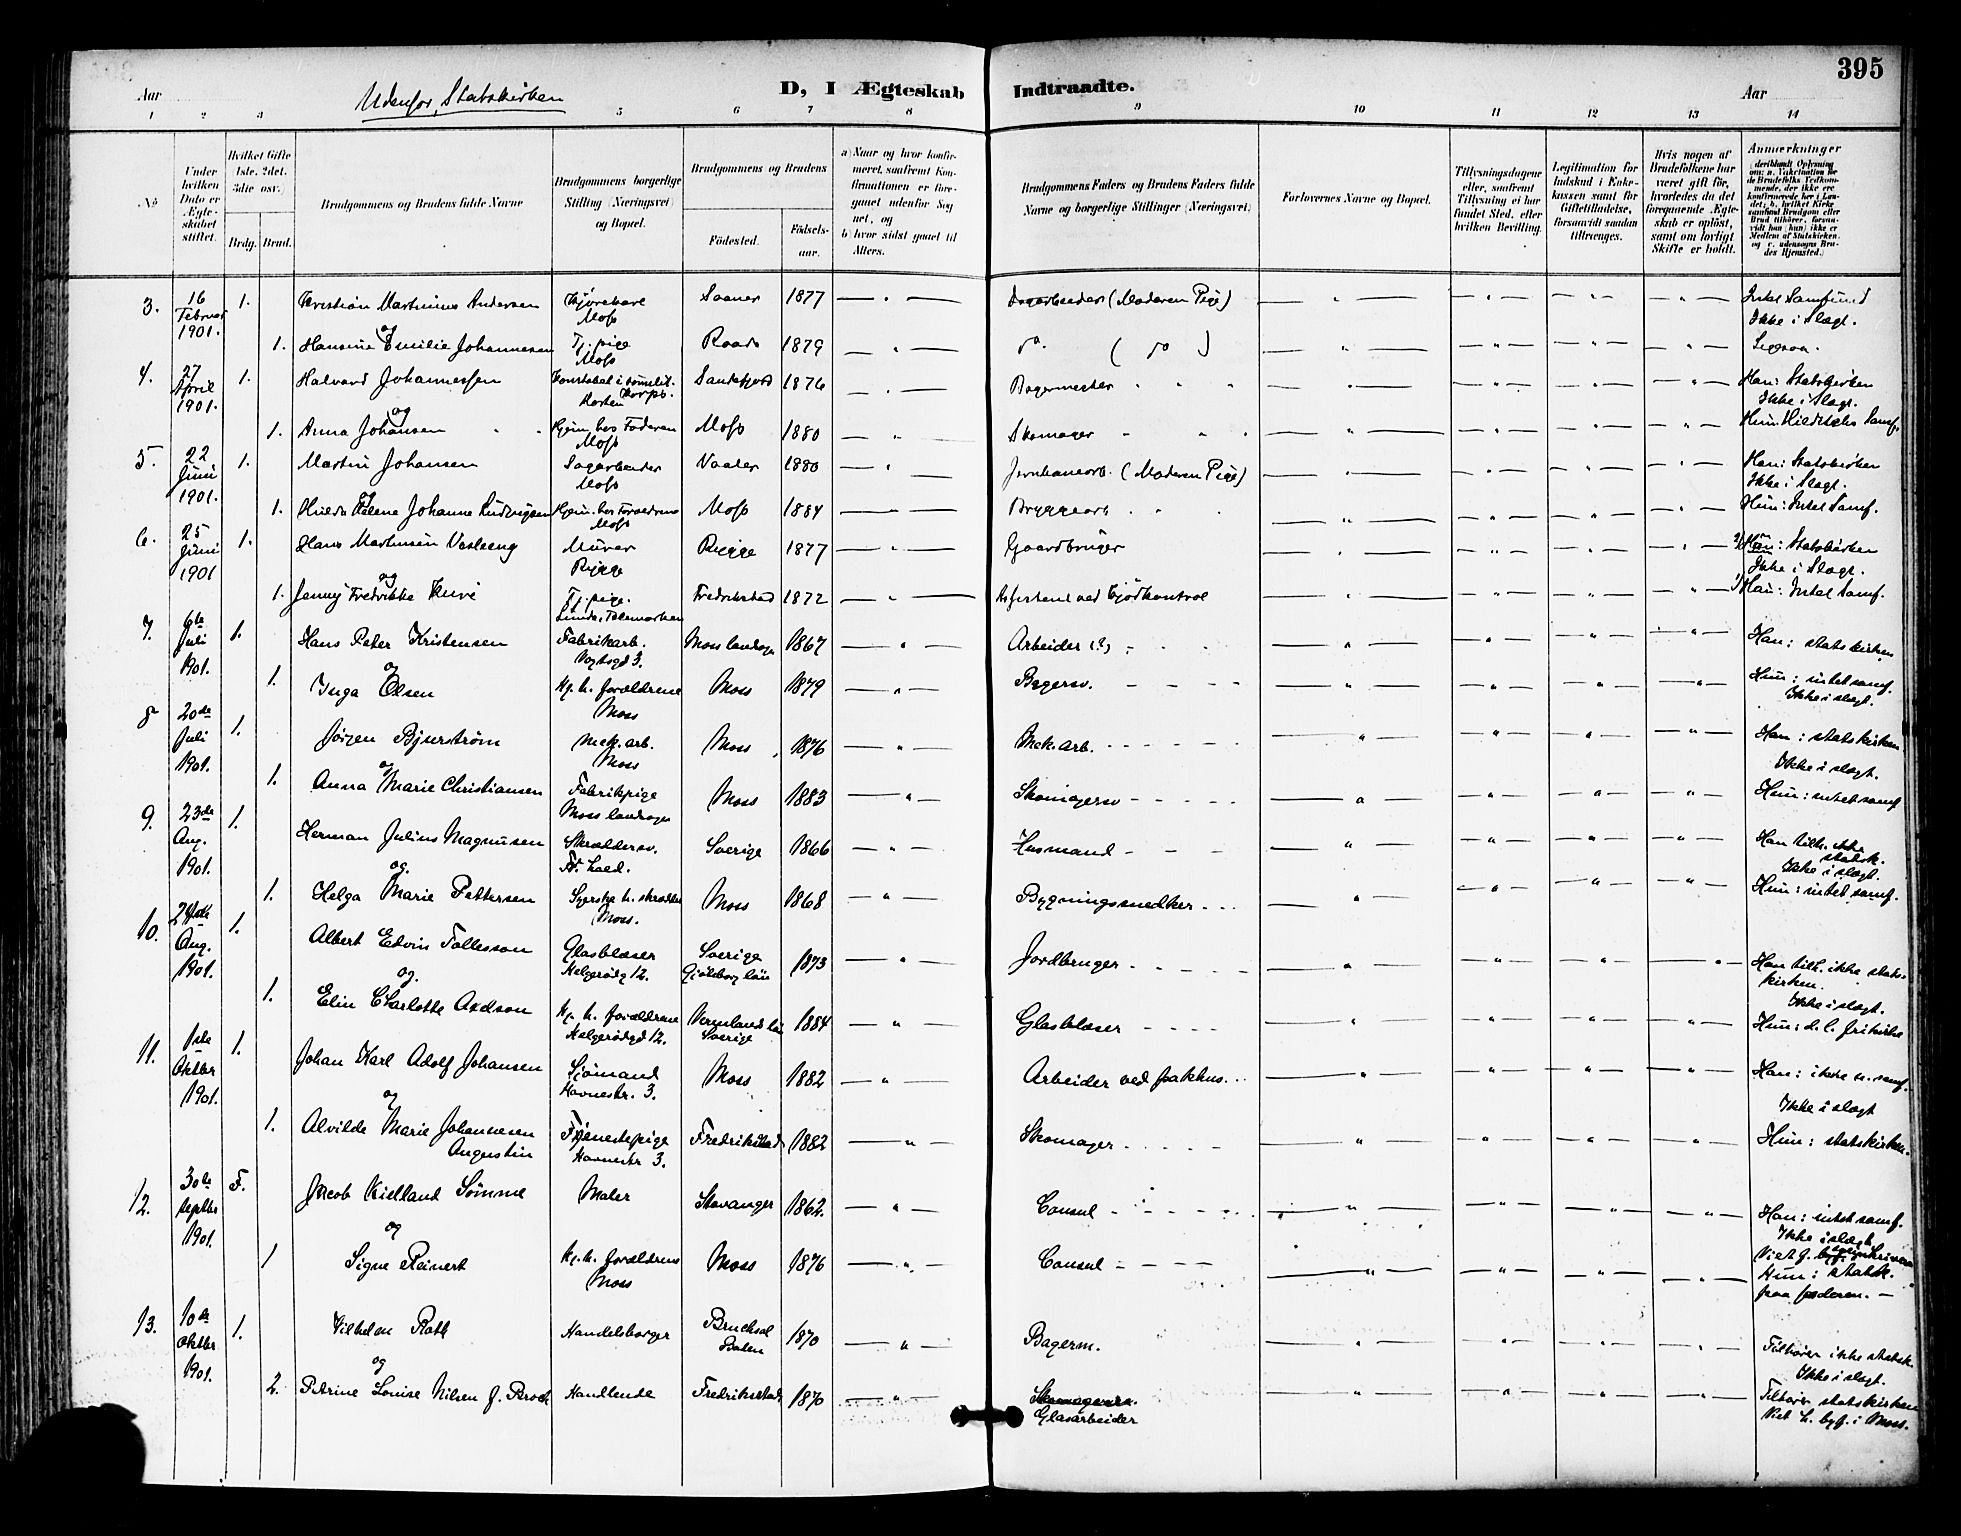 395
Aar
Udenfor Statskirken
D, I Ægteskab Indtraadte.
Aar
1 2 3 5 6 7 8 9 10 11 12 13 14
No
Under hvilken Dato er Ægteskabet stiftet.
Hvilket Gifte 1ste, 2det, 3die osv.)
Brdg. Brud.
Brudgommens og Brudens fulde Navne
Brudgommens borgerlige Stilling (Næringsvei) og Bopæl.
Brudgommens og Brudens
Fødested.
Fødselsaar.
a) Naar og hvor konfirmeret, saafremt Konfirmationen er foregaaet udenfor Sognet, og
b) hvor sidst gaaet til Alters.
Brudgommens Faders og Brudens Faders fulde Navne og borgerlige Stillinger (Næringsvei)
Forlovernes Navne og Bopæl.
Tillysningsdagene eller, saafremt Tillysning ei har fundet Sted, efter hvilken Bevilling.
Legitimation for Indskud i Enkekassen samt for Giftetilladelse, forsaavidt saadan tiltrænges.
Hvis nogen af Brudefolkene har været gift før, hvorledes da det foregaaende Ægteskab er opløst, samt om lovligt Skifte er holdt.
Anmærkninger
3. 16 Februar 1901. 1. Kristian Martinius Andersen Kjørekare Moss Saaner 1877 Dagarbeider (Moderen Pige) Intet Samfund Ikke i Slægt.
og
1. Hansine Emilie Johannesen Tj. pige Moss Raade 1879 do. (do)
4. 27 April 1901. 1. Halvard Johannessen Horten Sandefjord 1876 Bagermester Han: Statskirken Ikke i Slægt.
og
1. Anna Johansen Hjem. hos Faderen Moss Moss 1880 Skomager
5. 22 Juni 1901. 1. Martin Johansen Sagarbeider Moss Vaaler 1880 (Moderen Pige) Han: Statskirken Ikke i Slægt.
og
1. Hulda Helene Johanne Ludvigsen Hjem. hos Forældrene Moss Moss 1884 Bryggearb. Hun: Intet Samf.
6. 25 Juni 1901 1. Hans Martinsen Vesleeng Murer Rygge Rygge 1877 Gaardbruger Statskirken Ikke i Slægt.
og
1. Jenny Fredrikke Tj. pige. Fredrikstad 1872 Intet Samf.
7. 6te Juli 1901. 1. Hans Peter Kristensen Fabrikarb. Vogtsgd 3. Moss landsogn 1867 Arbeider (?) Han: statskirken
og
1. Inga Olsen Hj. h. forældrene Moss Moss 1879 Bagersv. Hun: intet samf. Ikke i slægt.
8 20de Juli 1901. 1. Jørgen Bjurstrøm Mek. arb. Moss Moss 1876 Mek. Arb. Han: statskirken Ikke i slægt.
og
1. Anna Marie Christiansen Fabrikpige Moss landsogn Moss 1883 Skomagersv Hun: intet samf
9. 23de Aug. 1901. 1. Herman Julius Magnusen Skræddersv. Sverige 1866 Husmand Han tilh. ikke statsk. Ikke i slægt.
og.
1. Helga Marie Pettersen Syerske h. skrædder Moss. Moss 1868 Bygningssnedker Hun: intet samf.
10. 24de Aug. 1901. 1. Albert Edvin Tollesson Glasblæser Helgerødg 12. Sverige Gjøteborg län 1873 Jordbruger Han tilh. ikke statskirken. Ikke i slægt.
og.
1. Elin Charlotte Axelson Hj. h. forældrene Helgerødgd 12. Vermlands län Sverige 1884 Glasblæser Hun: d. l. frikirke
11. 1ste Oktbr 1901. 1. Johan Karl Adolf Johansen Sjømand Havnestr. 3. Moss 1882 Arbeider ved pakhus Han: ikke n. samf. Ikke i slægt
og
1. Alvilde Marie Johannesen Augustin Tjenestepige Havnestr 3. Fredrikstad 1882 Skomager Hun: statskirken.
12. 30te septbr 1901. F. Jacob Kielland Sømme Maler Stavanger 1862. Consul Han: intet samf. Ikke i slægt
og
1 Signe Reinert Hj. h. forældrene Moss Moss 1876 Consul Hun: statsk. paa faderen.
13. 10de Oktbr 1901. 1. Vilhelm Roth Handelsborger Bruchsal Baden 1870 Bagerm. Tilhører ikke statsk. Ikke i slægt.
og
2. Petrine Louise Nilsen f. Broch Handlende Fredrikstad 1870 Glasarbeider Tilhører statskirken Viet h. byf. i Moss.